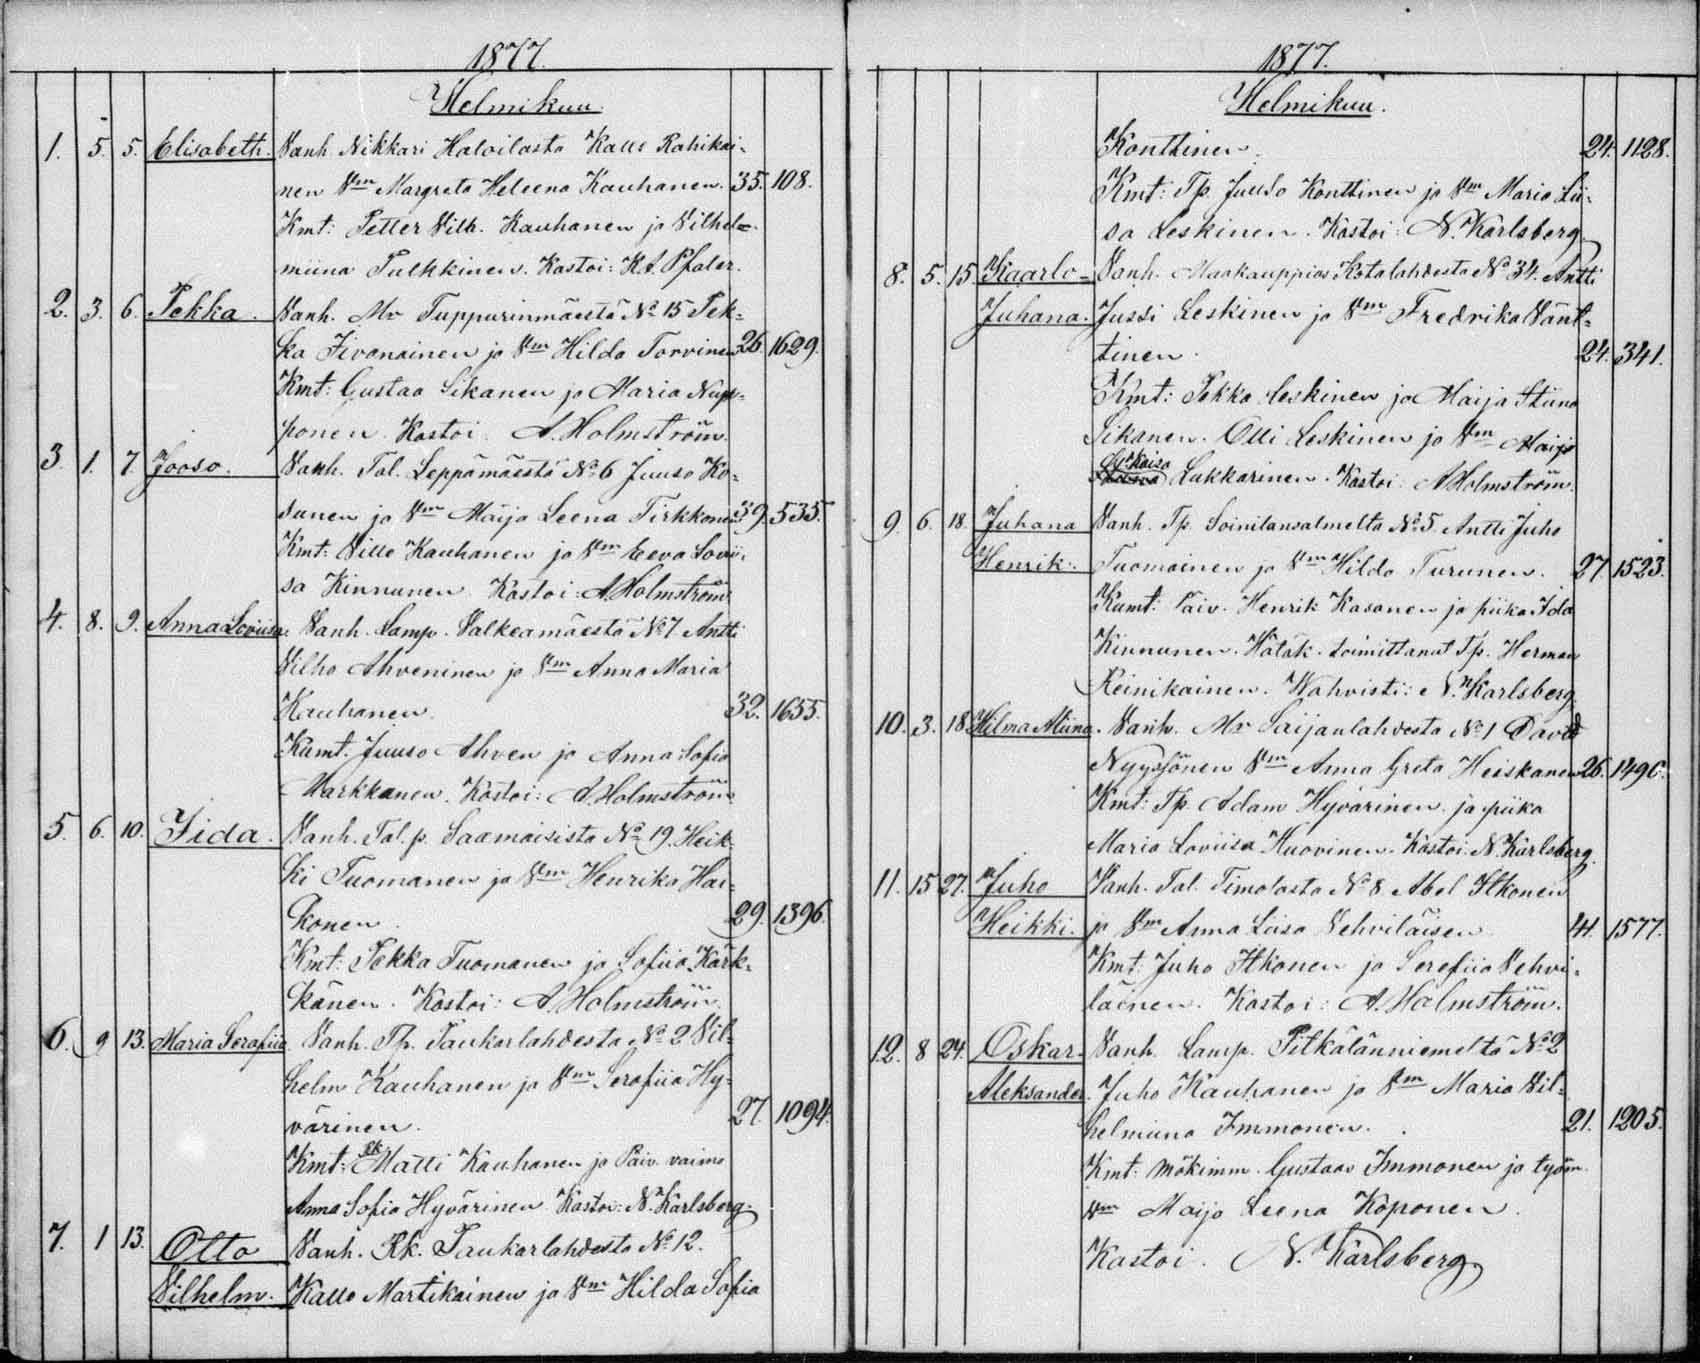 1877.
Helmikuu.
1. 5. 5. Elisabeth. Vanh. Nikkari Haloilasta Kalle Rahikai-
nen Vm Margreta Heleena Kauhanen. 35. 108.
Kmt: Petter Vilh. Kauhanen ja Vilhel-
miina Pulkkinen. Kastoi: K.A. Pfaler.
2. 3. 6. Pekka. Vanh. Mr Tuppurinmäestä No 15 Pek-
ka Iivanainen ja Vm Hilda Torvinen 26. 1629.
Kmt: Gustaa Sikanen ja Maria Nup-
ponen. Kastoi. A. Holmström.
3. 1. 7. Jooso. Vanh. Tal. Leppämäestä No 6 Juuso Ko-
sunen ja Vm Maija Leena Tirkkonen 39. 535.
Kmt: Ville Kauhanen ja Vm Eeva Lovii-
sa Kinnunen. Kastoi: A. Holmström
4. 8. 9. Anna Loviisa. Vanh. Lamp. Valkeamäestä No 7. Antti
Vilho Ahveninen ja Vm Anna Maria
Kauhanen. 32. 1655.
Kumt. Juuso Ahven ja Anna Sofia
Markkanen. Kastoi: A. Holmström
5. 6. 10. Iida. Vanh. Tal. p. Saamaisista No 19. Heik-
ki Tuomanen ja Vm Henrika Hak-
konen. 29. 1396.
Kmt: Pekka Tuomanen ja Sofiia Kärk-
känen. Kastoi: A. Holmström.
6. 9 13. Maria Serafiia. Vanh. Tp. Paukarlahdesta No 2 Vil-
helm Kauhanen ja Vm Serafiia Hy-
värinen. 27. 1094.
Kmt: Rk Matti Kauhanen ja Päiv. vaimo
Anna Sofia Hyvärinen. Kastoi: N. Karlsberg.
7. 1 13. Otto Vanh. Rk. Paukarlahdesta No 12.
Vilhelm. Kalle Martikainen ja Vm Hilda Sofia
1877.
Helmikuu.
Konttinen. 24. 1128.
Kmt: Tp. Juuso Konttinen ja Vm Maria Lii-
sa Leskinen. Kastoi: N. Karlsberg.
8. 5. 15. Kaarlo- Vanh. Maakauppias Kotalahdesta No 34. Antti
Juhana. Jussi Leskinen ja Vm Fredrika Vänt-
tinen. 24. 341.
Kmt: Pekka Leskinen ja Maija Stiina
Sikanen. Olli Leskinen ja Vm Maija
Kaisa Lukkarinen. Kastoi A Holmström.
9. 6. 18. Juhana Vanh. Tp. Soinilansalmelta No 5. Antti Juho
Henrik. Tuomainen ja Vm Hilda Turunen. 27. 1523.
Kumt: Päiv. Henrik Kasanen ja piika Ida
Kinnunen. Hätäk. toimittanut Tp. Herman
Reinikainen. Wahvisti: N. Karlsberg.
10. 3. 18. Hilma Miina. Vanh. Mr Saijanlahdesta No 1 David
Nyyssönen Vm Anna Greta Heiskanen 26. 1490.
Kmt: Tp. Adam Hyvärinen ja piika
Maria Loviisa Huovinen. Kastoi. N. Karlsberg.
11. 15 27. Juho Vanh. Tal. Timolasta No 8. Abel Itkonen
Heikki. ja Vm Anna Liisa Vehviläisen 41. 1577.
Kmt: Juho Itkonen ja Serefiia Vehvi-
läinen. Kastoi: A. Holmström.
12. 8 24. Oskar. Vanh. Lamp. Pitkälänniemeltä No 2
Aleksander. Juho Kauhanen ja Vm Maria Vil-
helmiina Immonen. 21. 1205.
Kmt: mökinm. Gustaav Immonen ja työm.
Vm Maija Leena Koponen.
Kastoi. N. Karlsberg.